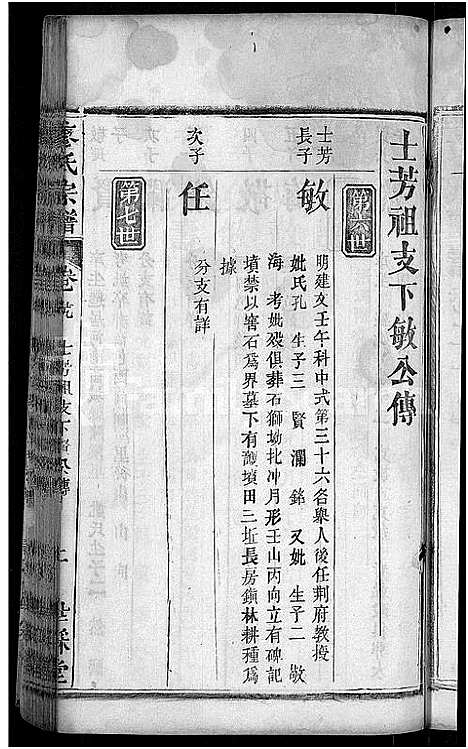 士芳祖支下敏公傳
第六世
士芳
長子
敏
明建文壬午科中式第三十六名舉人後任荆府教授
妣氏孔 生子三 賢 瀾 銘 又妣 生子二 敬
海 考妣歿俱葬石獅坳北冲月形壬山丙向立有碑記
墳禁以窖石爲界墓下有護墳田三坵長房鎮林耕種爲
據
第七世
次子
任
分支有詳
氏宗譜
卷
士芳祖支下